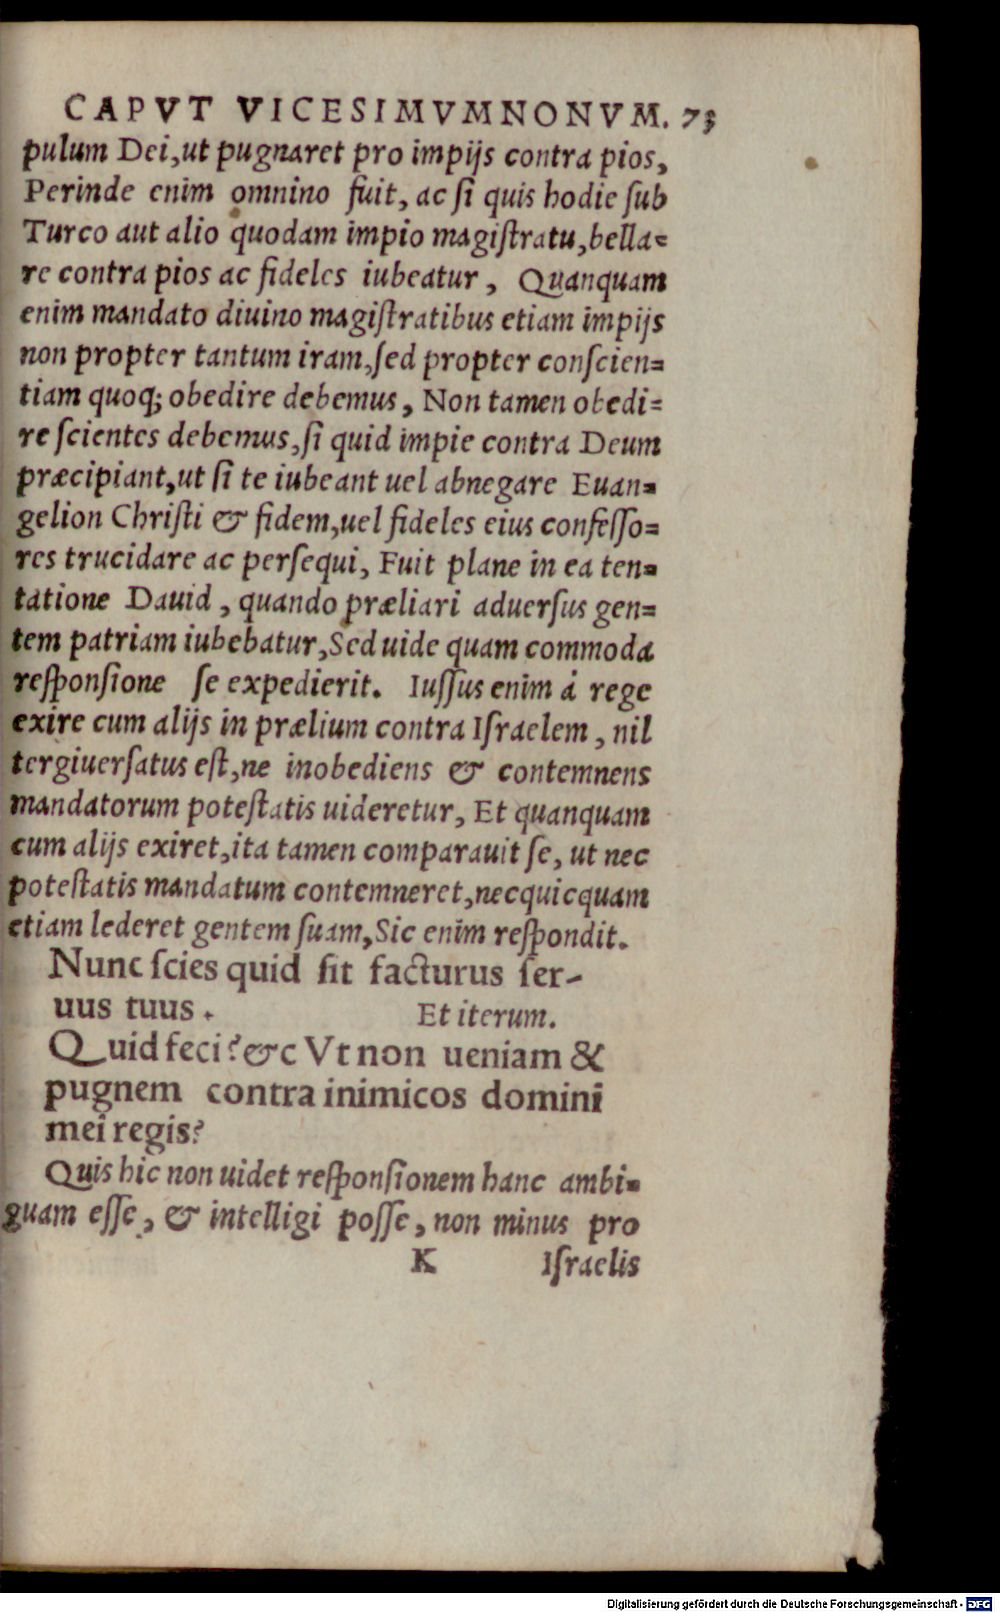 CAPVT VICESIMVMNONVM. 73
pulum Dei,ut pugnaret pro impijs contra pios,
Perinde enim omnino fuit, ac si quis hodie sub
Turco aut alio quodam impio magistratu,bella=
re contra pios ac fideles iubeatur, Quanquam
enim mandato diuino magistratibus etiam impijs
non propter tantum iram,sed propter conscien=
tiam quoq; obedire debemus, Non tamen obedi=
re scientes debemus,si quid impie contra Deum
præcipiant,ut si te iubeant uel abnegare Euan=
gelion Christi & fidem,uel fideles eius confesso=
res trucidare ac persequi, Fuit plane in ea ten=
tatione Dauid, quando præliari aduersus gen=
tem patriam iubebatur,Sed uide quam commoda
responsione se expedierit. Iussus enim á rege
exire cum alijs in prælium contra Israelem, nil
tergiuersatus est,ne inobediens & contemnens
mandatorum potestatis uideretur, Et quanquam
cum alijs exiret,ita tamen comparauit se, ut nec
potestatis mandatum contemneret,nec quicquam
etiam lederet gentem suam,Sic enim respondit.
Nunc scies quid sit facturus ser-
uus tuus. Et iterum.
Quid feci?&c Vt non ueniam &
pugnem contra inimicos domini
mei regis?
Quis hic non uidet responsionem hanc ambi=
guam esse, & intelligi posse, non minus pro
K Israelis
Digitalisierung gefördert durch die Deutsche Forschungsgemeinschaft - DFG